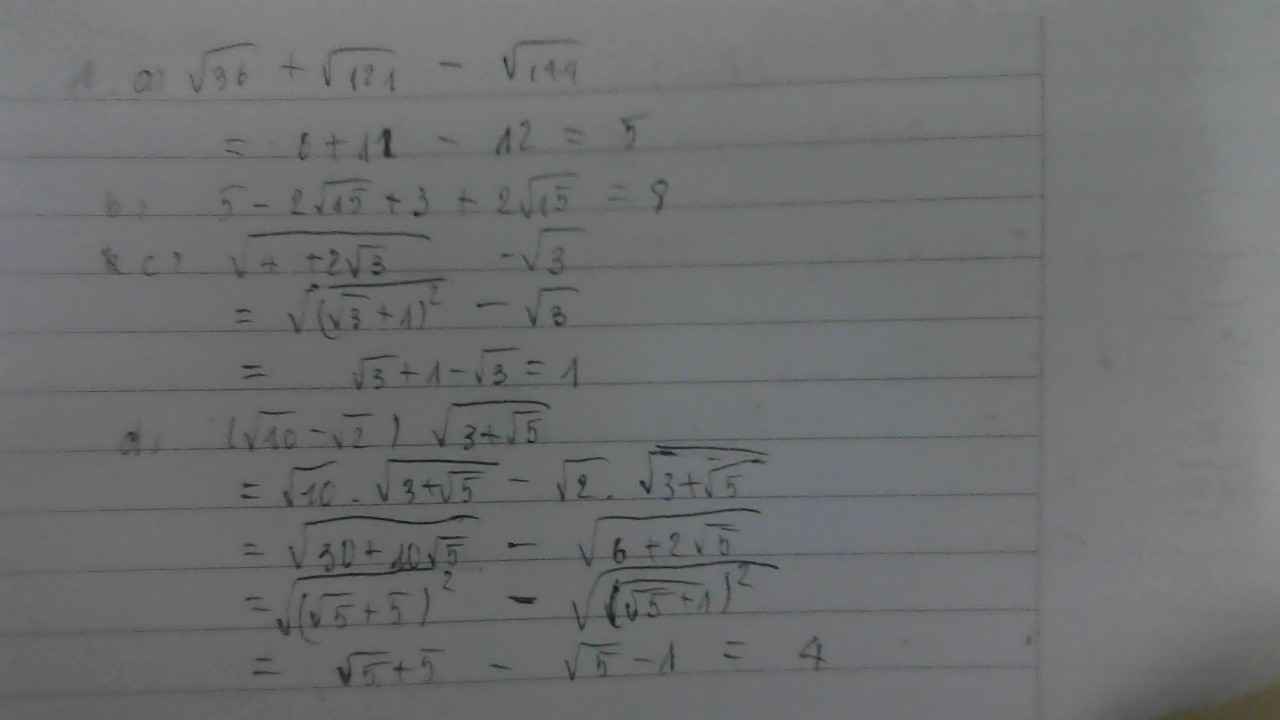 1 a: √36 + √121 - √144
= 6 + 11 - 12 = 5
b: 5 - 2√15 + 3 + 2√15 = 8
c: √(4 + 2√3) - √3
= √((√3 + 1)²) - √3
= √3 + 1 - √3 = 1
d: (√10 - √2) √(3 + √5)
= √10 . √(3 + √5) - √2 . √(3 + √5)
= √(30 + 10√5) - √(6 + 2√5)
= √((√5 + 5)²) - √((√5 + 1)²)
= √5 + 5 - √5 - 1 = 4